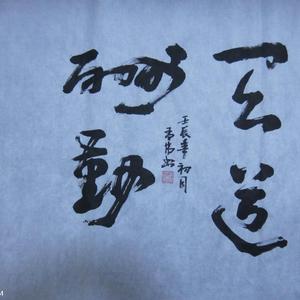 天道
酬勤
壬辰年初月